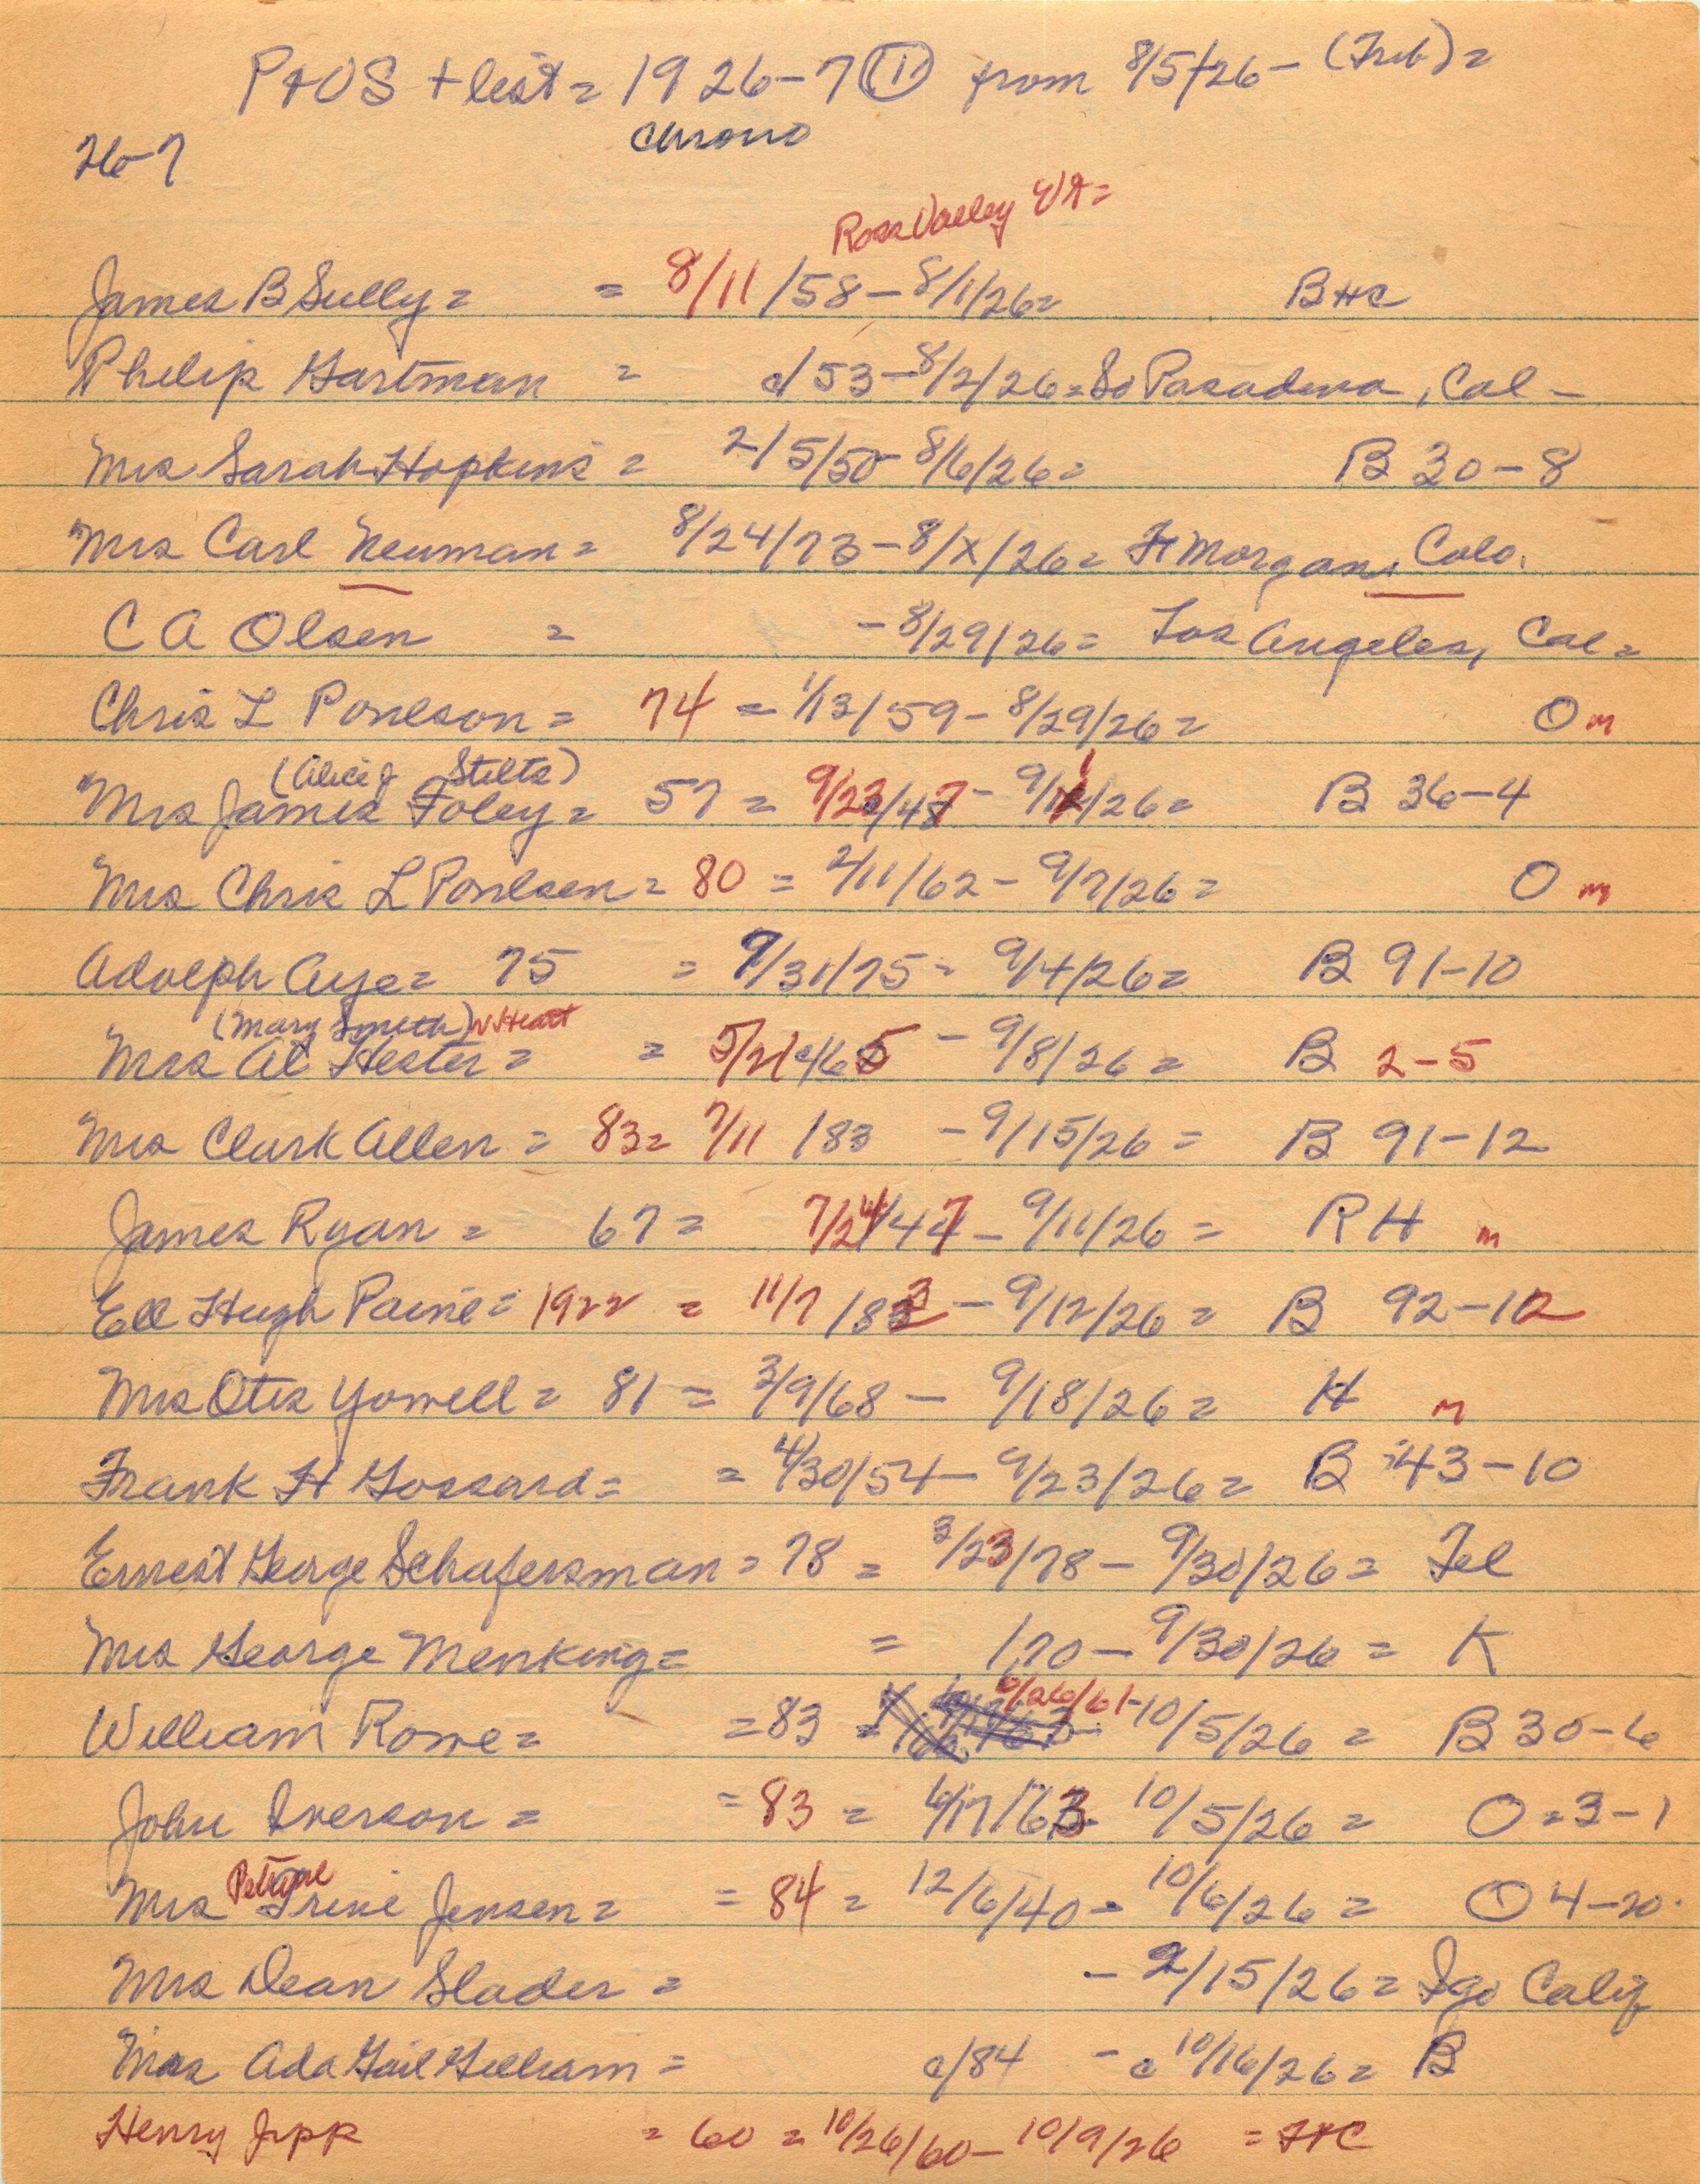 P+OS + list = 1926-7 ① from 8/5/26 - (Trib) =
chrono
26-7
Ross Valley
James B Sully = = 8/11/58 - 8/1/26 = BHC
Philip Gartman = c/53 - 8/2/26 = So Pasadena, Cal -
Mrs Sarah Hopkins = 2/5/50 - 8/6/26 = B 30-8
Mrs Carl Neuman = 8/24/73 - 8/X/26 = Ft Morgan, Colo.
C A Olsen = - 8/29/26 = Los Angeles, Cal =
Chris L Poulson = 74 = 1/13/59 - 8/29/26 = O m
(Alice J Stilts)
Mrs James Foley = 57 = 9/23/47 - 9/1/26 = B 36-4
Mrs Chris L Poulsen = 80 = 2/11/62 - 9/7/26 = O m
Adolph Aye = 75 = 7/31/75 - 9/4/26 = B 91-10
(Mary Smith)
Mrs Al Hester = = 5/21/65 - 9/8/26 = B 2-5
Mrs Clark Allen = 83 = 7/11/83 - 9/15/26 = B 91-12
James Ryan = 67 = 7/24/47 - 9/11/26 = RH m
Ell Hugh Paine = 1922 = 11/7/83 - 9/12/26 = B 92-12
Mrs Otis Yowell = 81 = 3/9/68 - 9/18/26 = H m
Frank H Gossard = = 4/30/54 - 9/23/26 = B 43-10
Ernest George Schafersman = 78 = 3/23/78 - 9/30/26 = Tel
Mrs George Menking = = /70 - 9/30/26 = K
6/26/61-
William Rowe = = 83 = 10/5/26 = B 30-6
John Iverson = = 83 = 6/17/63 - 10/5/26 = O = 3-1
Mrs Trine Jensen = = 84 = 12/6/40 - 10/6/26 = O 4-20
Mrs Dean Slader = - 2/15/26 = Igo Calif
Mrs Ada Gail Gilliam = c/84 - c 10/16/26 = B
Henry Jipp = 60 = 10/26/60 - 10/9/26 = FtC